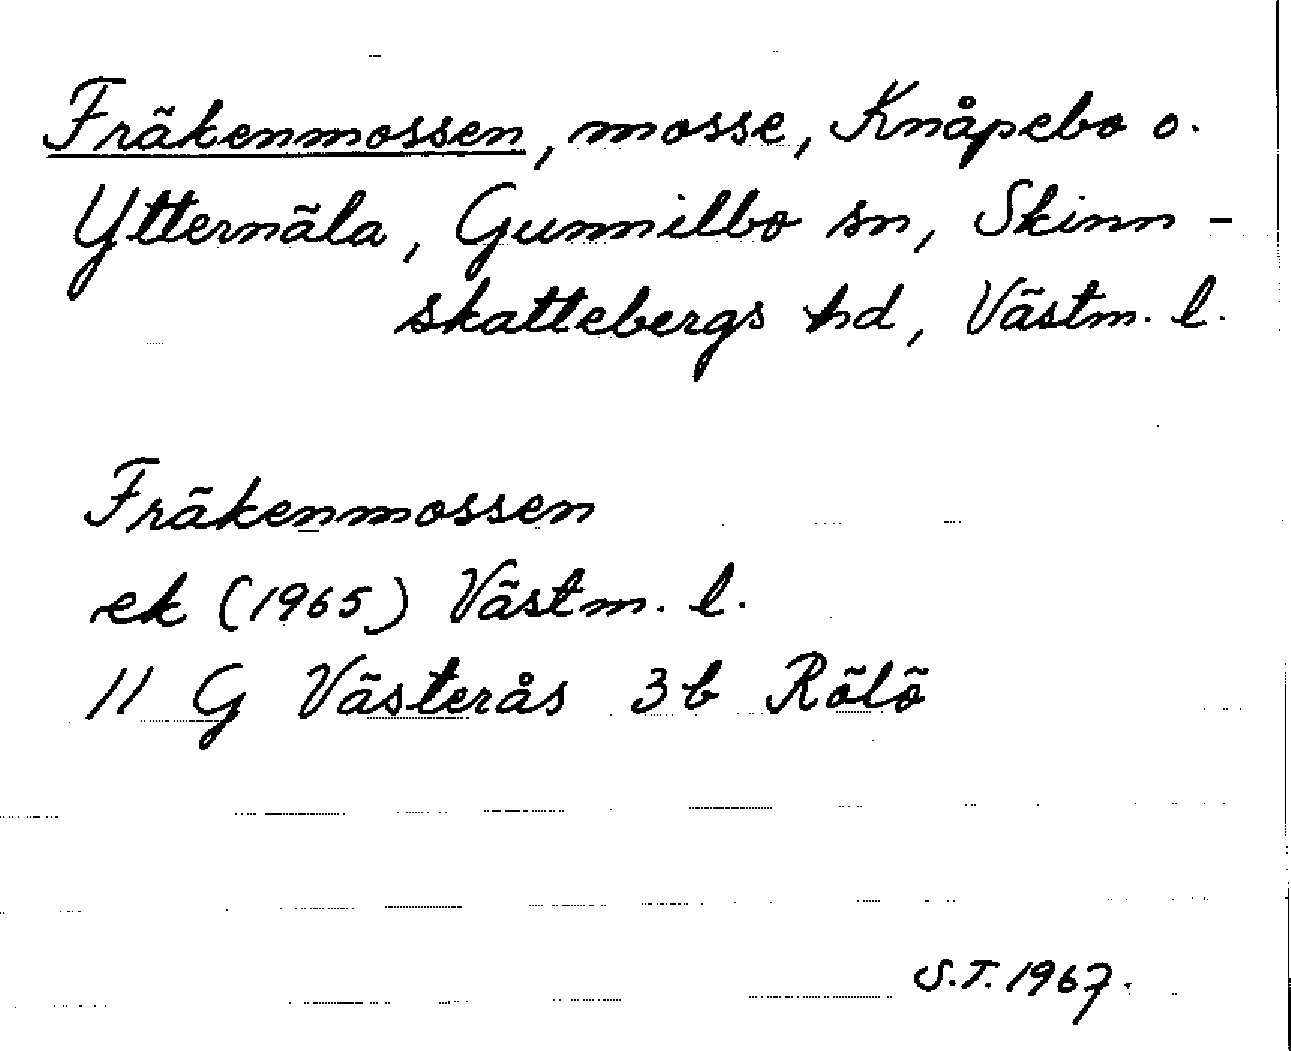 Fräkenmossen, mosse, Knåpebo o.
Ytternäla, Gunnilbo sn, Skinn-
skattebergs hd, Västm. l.
Fräkenmossen
ek (1965) Västm. l.
11 G Västerås 3b Rölö
S.T. 1967.